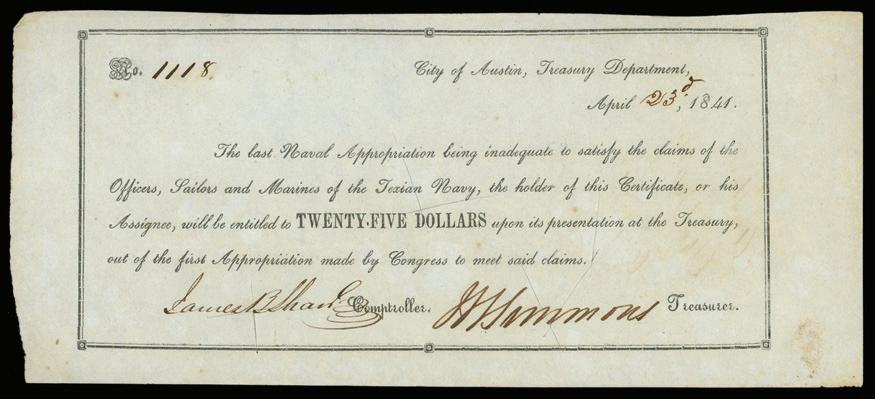 No. 1118.
City of Austin, Treasury Department,
April 23d, 1841.
The last Naval Appropriation being inadequate to satisfy the claims of the
Officers, Sailors and Marines of the Texian Navy, the holder of this Certificate, or his
Assignee, will be entitled to TWENTY-FIVE DOLLARS upon its presentation at the Treasury,
out of the first Appropriation made by Congress to meet said claims.
James B Shaw Comptroller. Simmons Treasurer.